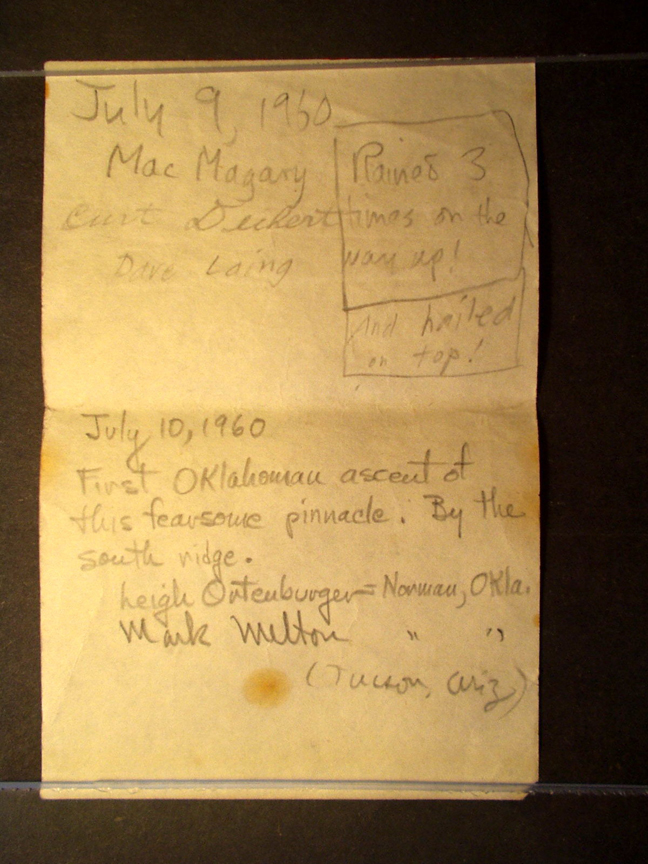 July 9, 1960
Mac Magary
Curt Deckert
Dave Laing
Rained 3
times on the
way up!
And hailed
on top!
July 10, 1960
First OKlahoman ascent of
this fearsome pinnacle. By the
south ridge.
Leigh Ortenburger = Norman, OKla.
Mark Melton " "
(Tucson, Ariz)